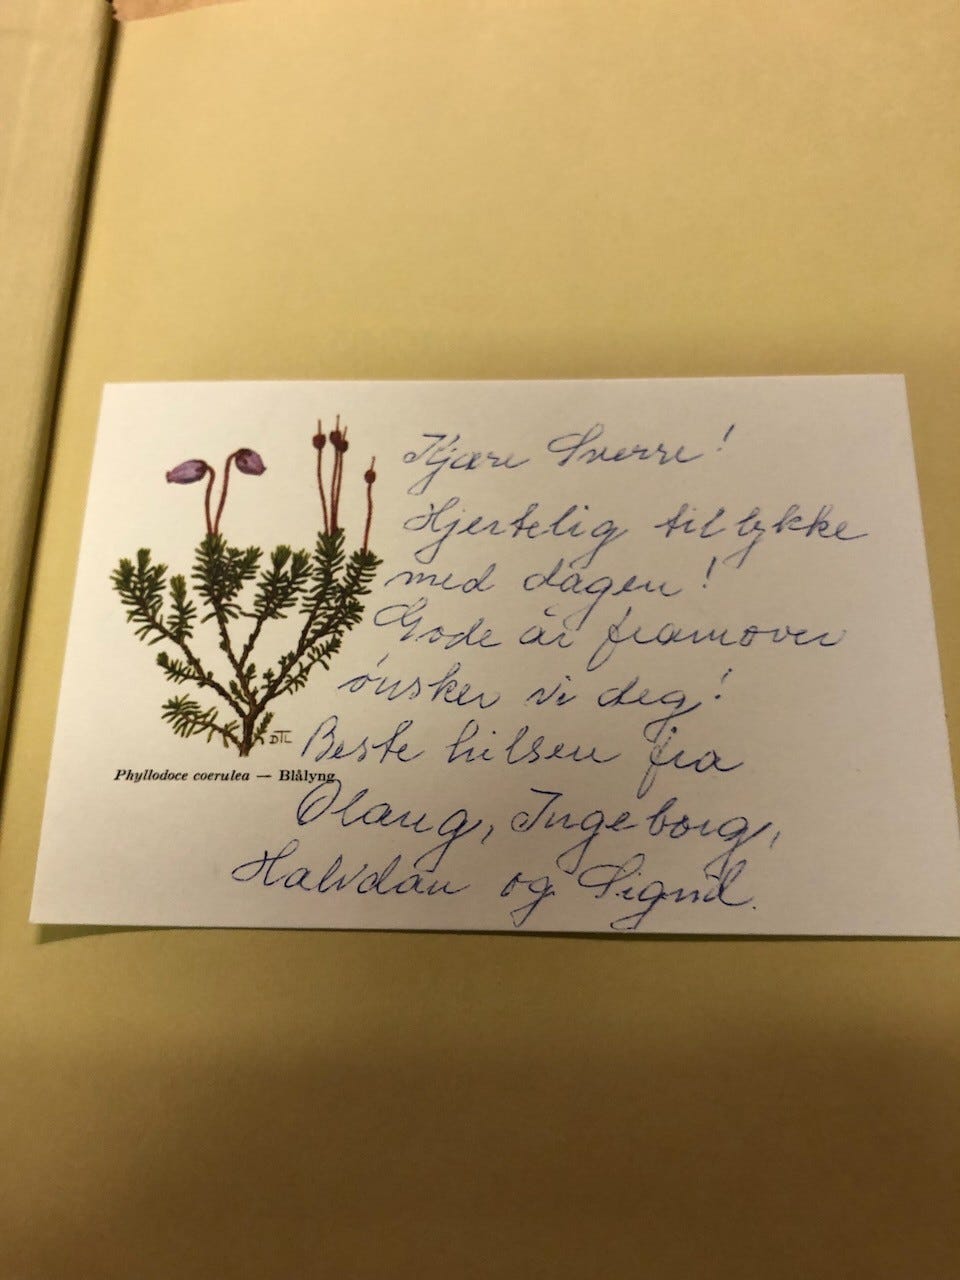 Kjære Sverre!
Hjertelig til lykke
med dagen!
Gode år framover
ønsker vi deg!
Beste hilsen fra
Olaug, Ingeborg,
Halvdan og Signil.
DTL
Phyllodoce coerulea — Blålyng